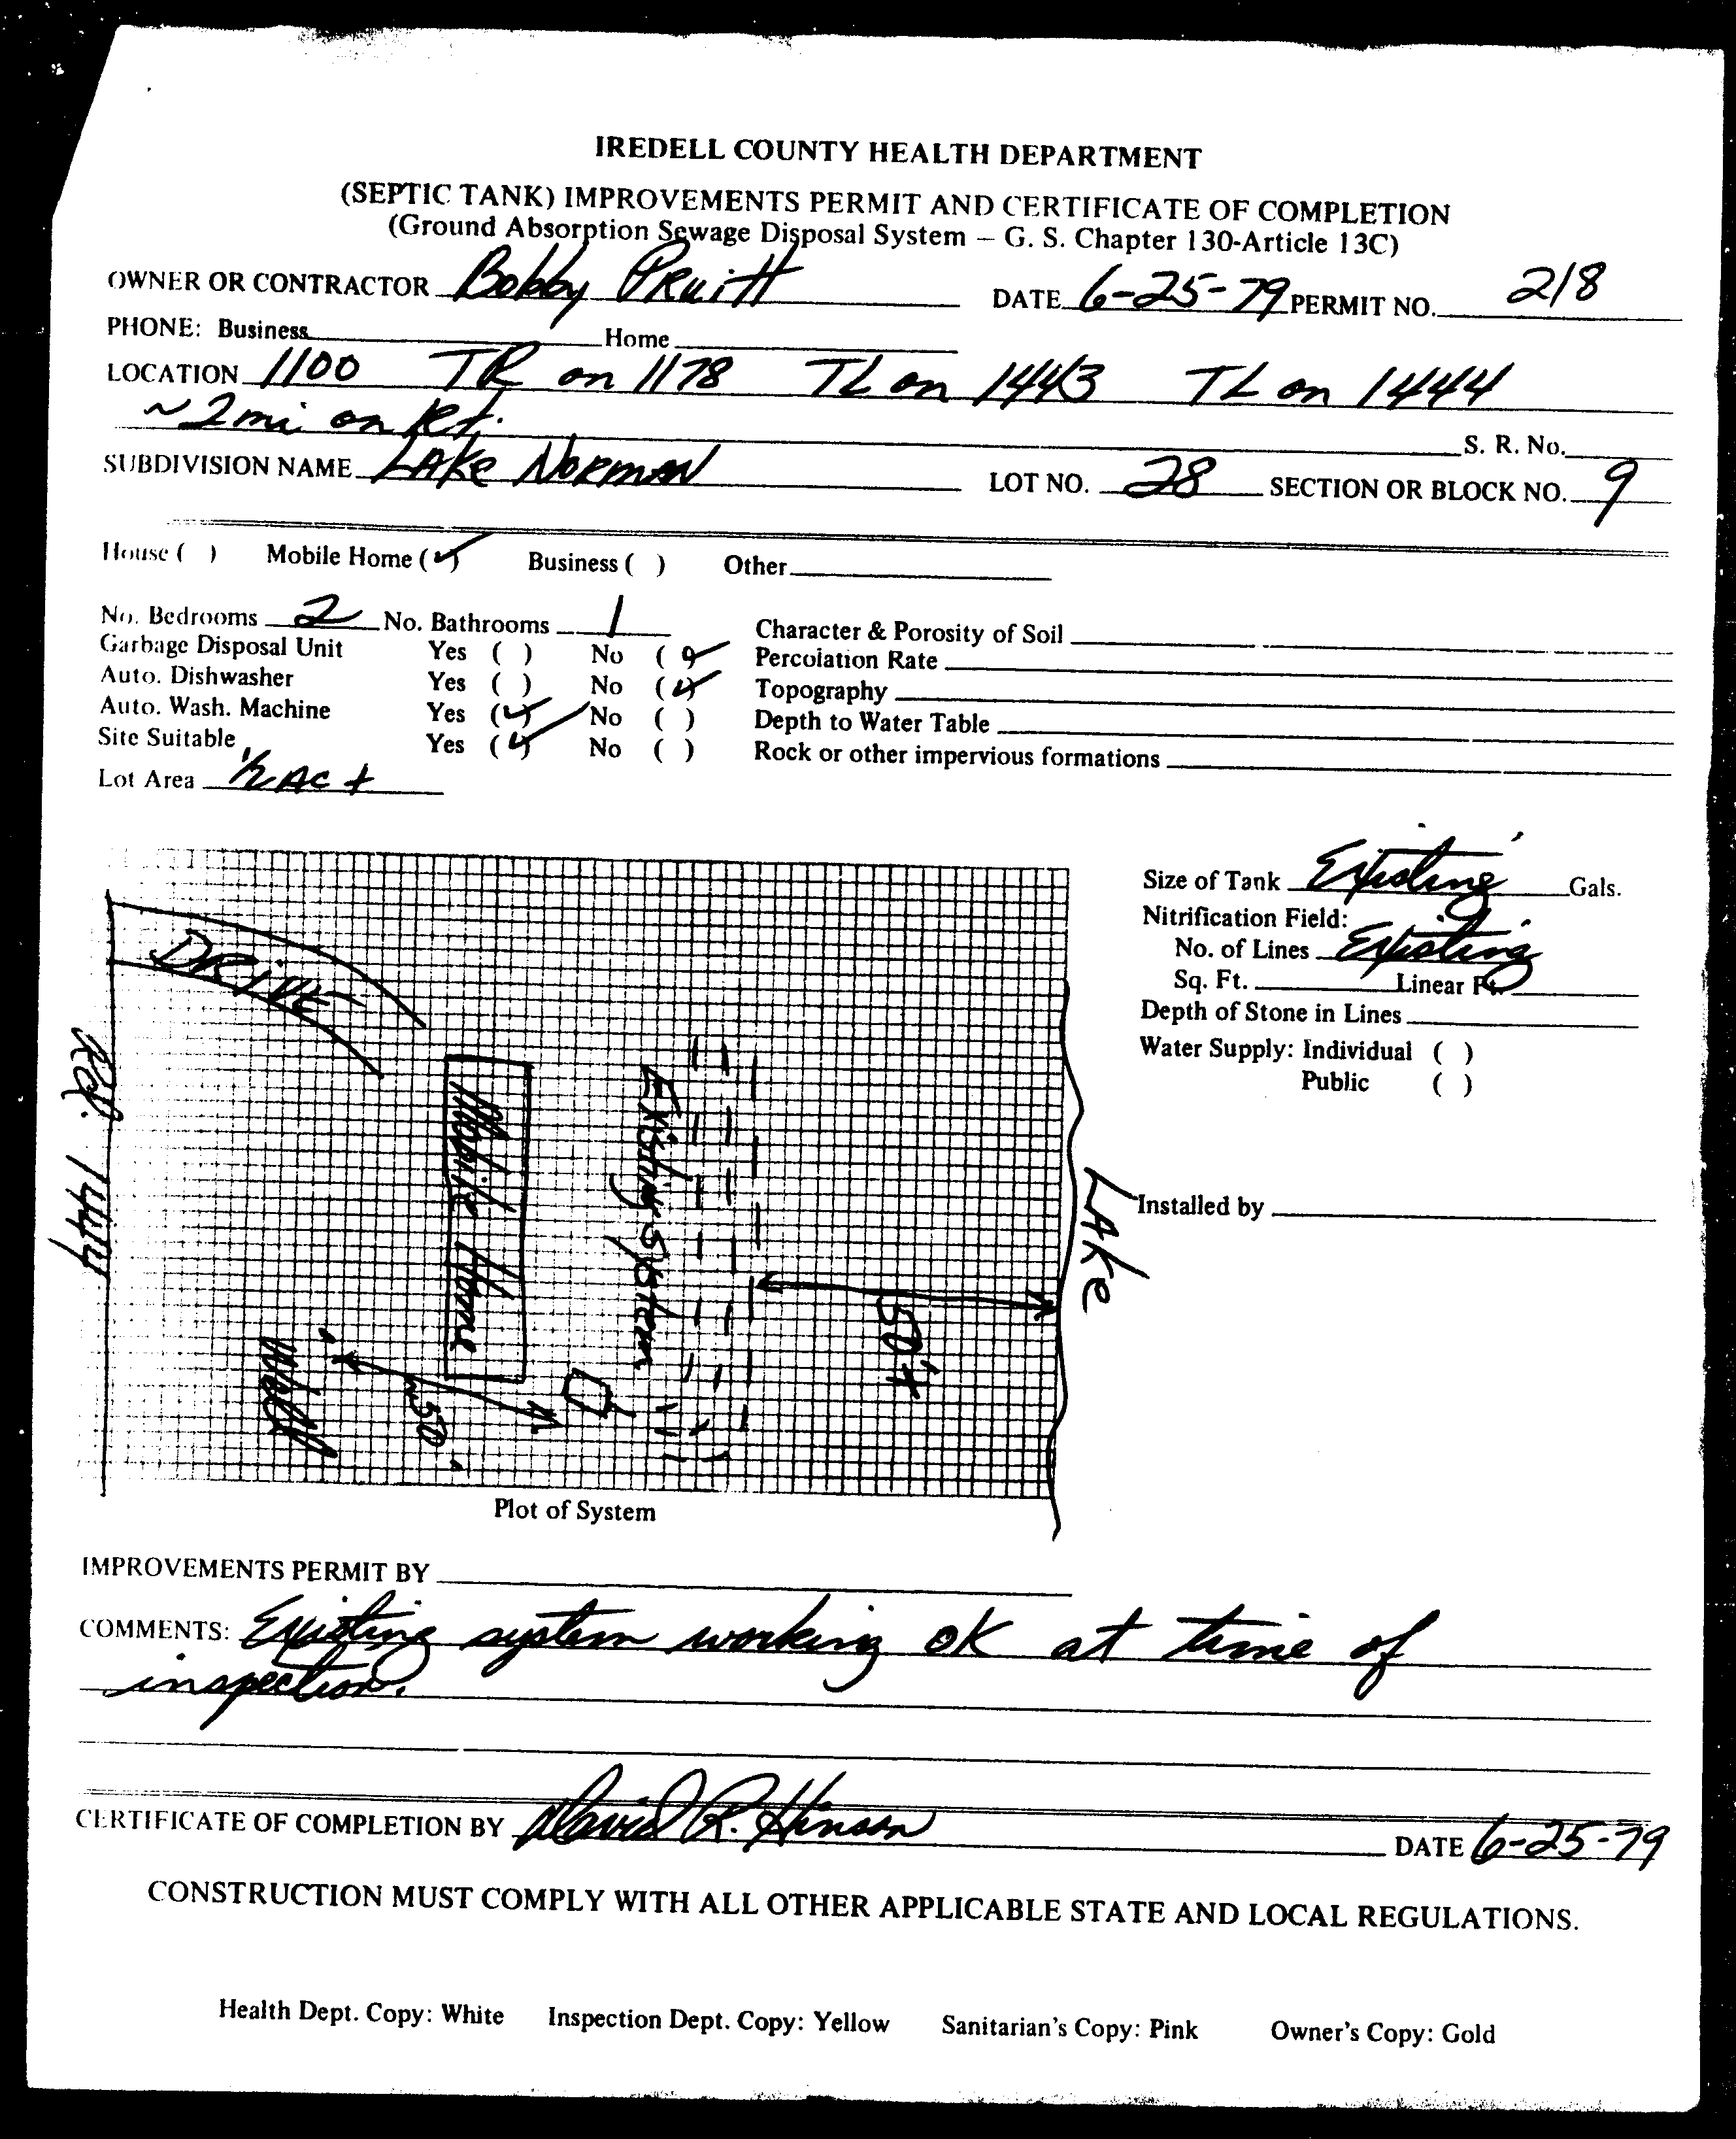 IREDELL COUNTY HEALTH DEPARTMENT
(SEPTIC TANK) IMPROVEMENTS PERMIT AND CERTIFICATE OF COMPLETION
(Ground Absorption Sewage Disposal System – G. S. Chapter 130-Article 13C)
OWNER OR CONTRACTOR Bobby Pruitt DATE 6-25-79 PERMIT NO. 218
PHONE: Business Home
LOCATION 1100 TR on 1178 TL on 1443 TL on 1444
~ 2 mi on Rt. S. R. No.
SUBDIVISION NAME Lake Norman LOT NO. 28 SECTION OR BLOCK NO. 9
House ( ) Mobile Home (✓) Business ( ) Other
No. Bedrooms 2 No. Bathrooms 1 Character & Porosity of Soil
Garbage Disposal Unit Yes ( ) No (✓) Percolation Rate
Auto. Dishwasher Yes ( ) No (✓) Topography
Auto. Wash. Machine Yes (✓) No ( ) Depth to Water Table
Site Suitable Yes (✓) No ( ) Rock or other impervious formations
Lot Area 1/2 AC +
Size of Tank Existing Gals.
Nitrification Field:
No. of Lines Existing
Sq. Ft. Linear Ft.
Depth of Stone in Lines
Water Supply: Individual ( )
Public ( )
Installed by
DRIVE
Rd. 1444
Mobile Home
Existing System
Well
~50'
50'+
Lake
Plot of System
IMPROVEMENTS PERMIT BY
COMMENTS: Existing system working OK at time of
inspection.
CERTIFICATE OF COMPLETION BY David R. Hinson DATE 6-25-79
CONSTRUCTION MUST COMPLY WITH ALL OTHER APPLICABLE STATE AND LOCAL REGULATIONS.
Health Dept. Copy: White Inspection Dept. Copy: Yellow Sanitarian's Copy: Pink Owner's Copy: Gold